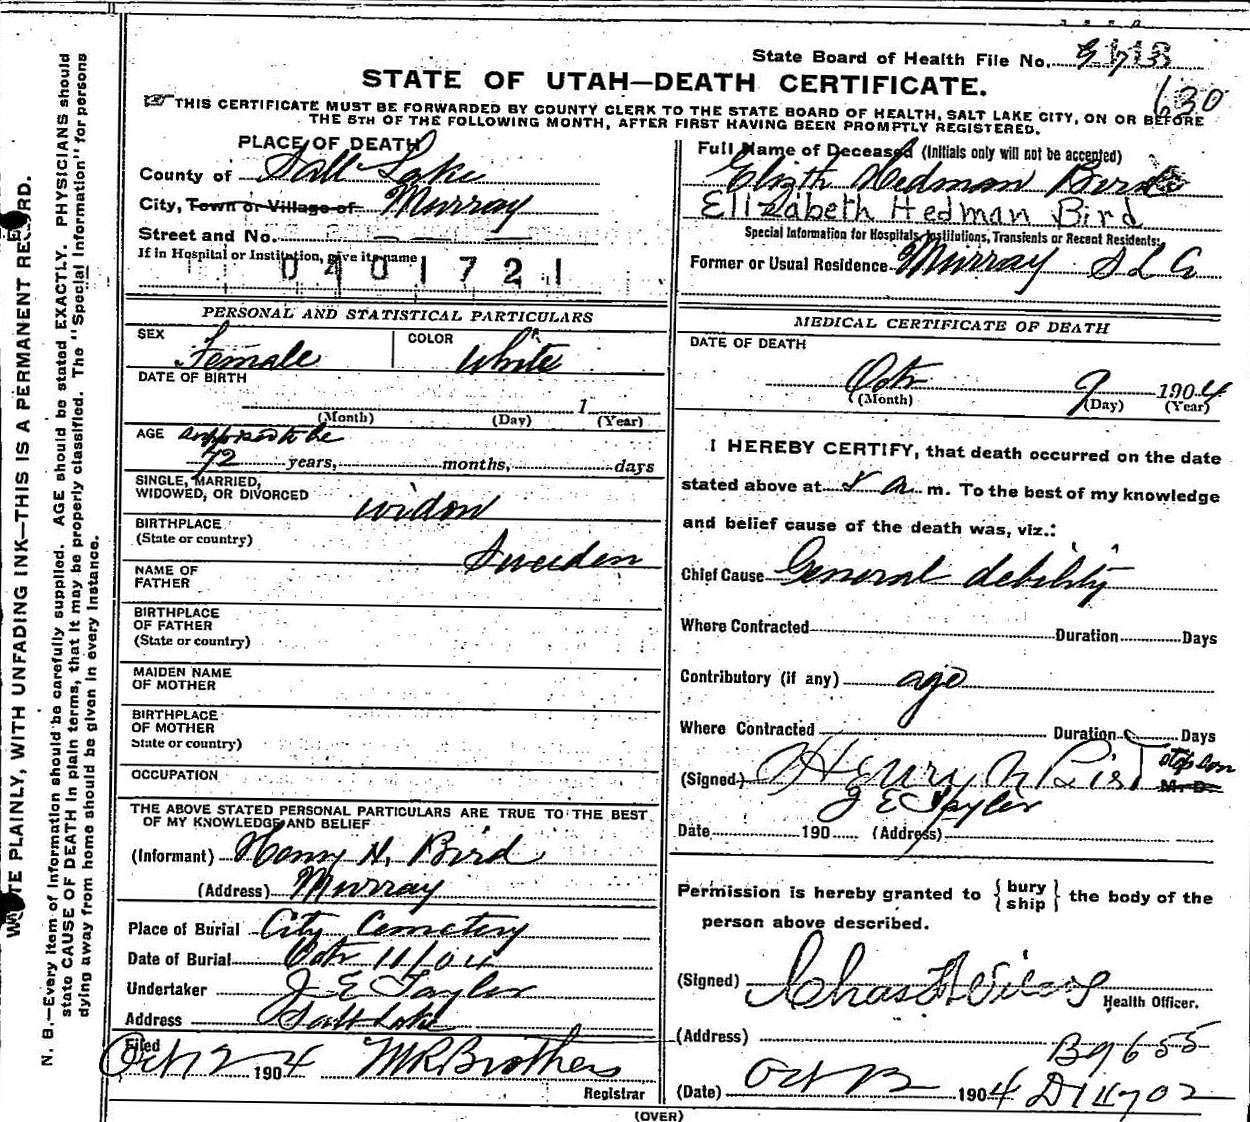 State Board of Health File No.
STATE OF UTAH—DEATH CERTIFICATE.
630
THIS CERTIFICATE MUST BE FORWARDED BY COUNTY CLERK TO THE STATE BOARD OF HEALTH, SALT LAKE CITY, ON OR BEFORE
THE 5TH OF THE FOLLOWING MONTH, AFTER FIRST HAVING BEEN PROMPTLY REGISTERED.
PLACE OF DEATH
County of Salt Lake
City, Town or Village of Murray
Street and No. — — —
If in Hospital or Institution, give its name
0401721
Full Name of Deceased (Initials only will not be accepted)
Elizth Hedman Bird
Elizabeth Hedman Bird
Special Information for Hospitals, Institutions, Transients or Recent Residents:
Former or Usual Residence Murray S L Co
PERSONAL AND STATISTICAL PARTICULARS
SEX Female
COLOR White
DATE OF BIRTH
1
(Month) (Day) (Year)
AGE supposed to be
72 years, months, days
SINGLE, MARRIED,
WIDOWED, OR DIVORCED widow
BIRTHPLACE
(State or country) Sweden
NAME OF
FATHER
BIRTHPLACE
OF FATHER
(State or country)
MAIDEN NAME
OF MOTHER
BIRTHPLACE
OF MOTHER
State or country)
OCCUPATION
THE ABOVE STATED PERSONAL PARTICULARS ARE TRUE TO THE BEST
OF MY KNOWLEDGE AND BELIEF
(Informant) Henry N. Bird
(Address) Murray
Place of Burial City Cemetery
Date of Burial Octr 11/04
Undertaker J E Taylor
Address Salt Lake
Filed
Oct 12 1904 M R Brothers
Registrar
MEDICAL CERTIFICATE OF DEATH
DATE OF DEATH
Octr 9 1904
(Month) (Day) (Year)
I HEREBY CERTIFY, that death occurred on the date
stated above at a m. To the best of my knowledge
and belief cause of the death was, viz.:
Chief Cause General debility
Where Contracted Duration Days
Contributory (if any) age
Where Contracted Duration Days
(Signed) Henry N Bird Stepson M. D.
J E Taylor
Date 190 (Address)
Permission is hereby granted to { bury ship } the body of the
person above described.
(Signed) Chas
Health Officer.
(Address)
B9655
(Date) Oct 12 1904 D14702
(OVER)
WRITE PLAINLY, WITH UNFADING INK—THIS IS A PERMANENT RECORD.
N. B.—Every item of information should be carefully supplied. AGE should be stated EXACTLY. PHYSICIANS should
state CAUSE OF DEATH in plain terms, that it may be properly classified. The "Special Information" for persons
dying away from home should be given in every instance.